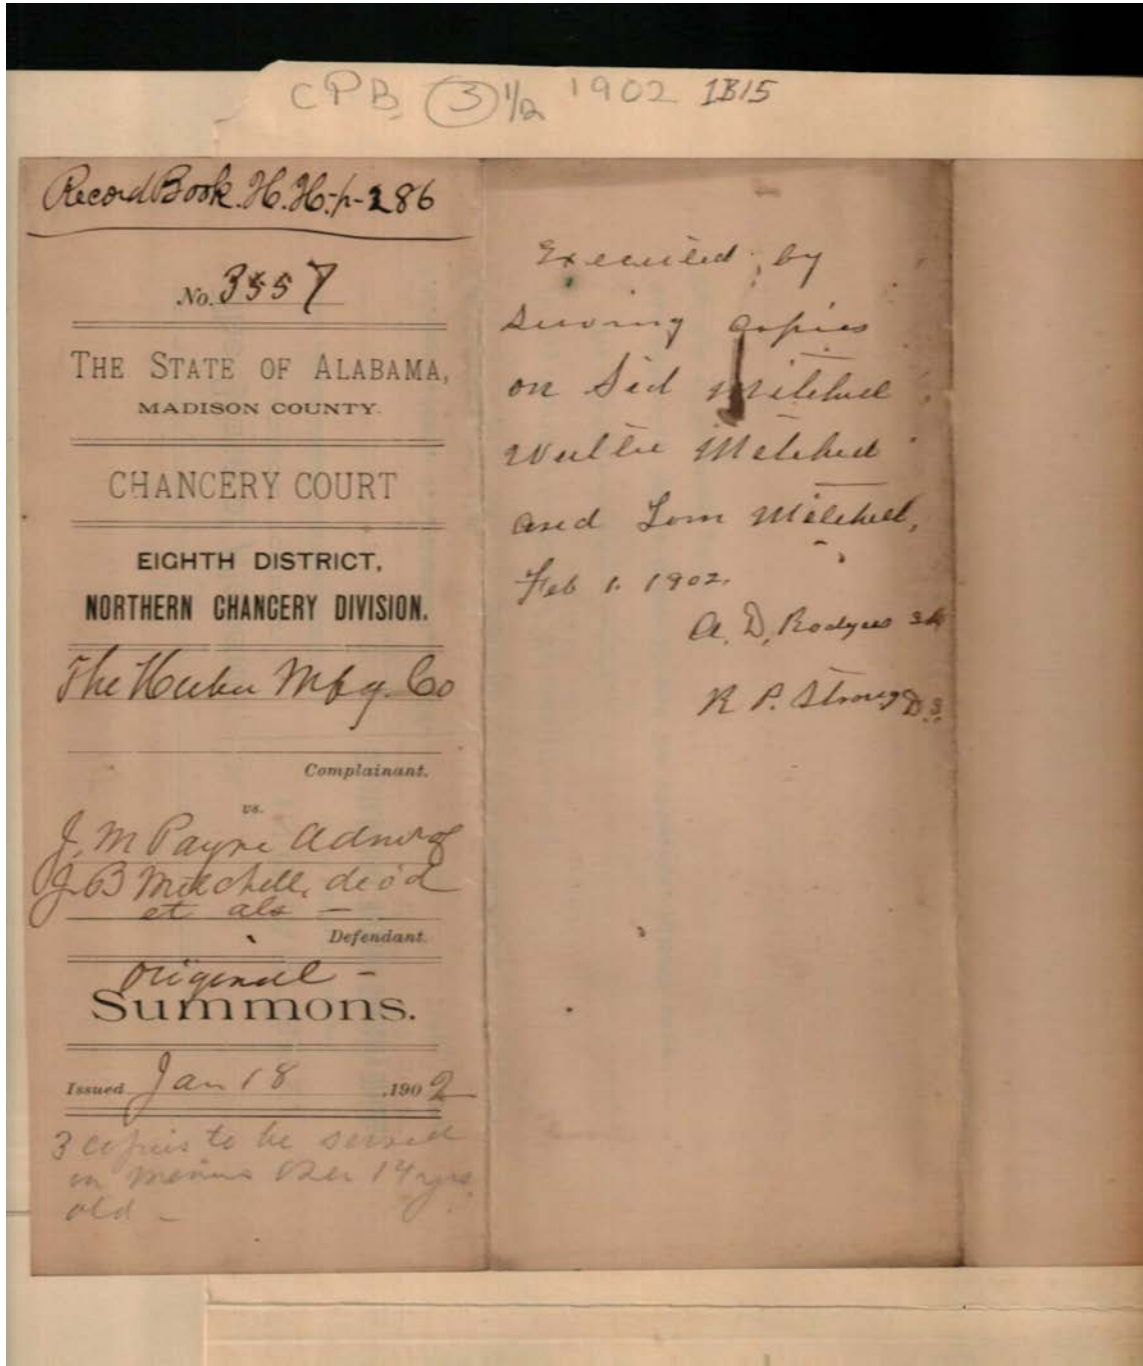 CPB 3 1/2 1902 1B15
Record Book. H. H. p-286
No. 3557
THE STATE OF ALABAMA,
MADISON COUNTY.
CHANCERY COURT
EIGHTH DISTRICT,
NORTHERN CHANCERY DIVISION.
The Huber Mfg. Co
Complainant.
vs.
J. M Payne Admr of
J B Mitchell, dec'd
et als —
Defendant.
Original —
Summons.
Issued Jan 18 1902
3 copies to be served
on minors over 14 yrs
old —
Executed by
serving copies
on Sid Mitchell
Mitchell
and Tom Mitchell,
Feb 1. 1902.
A. D. Rodgers Sh
R P. Strong D. S.